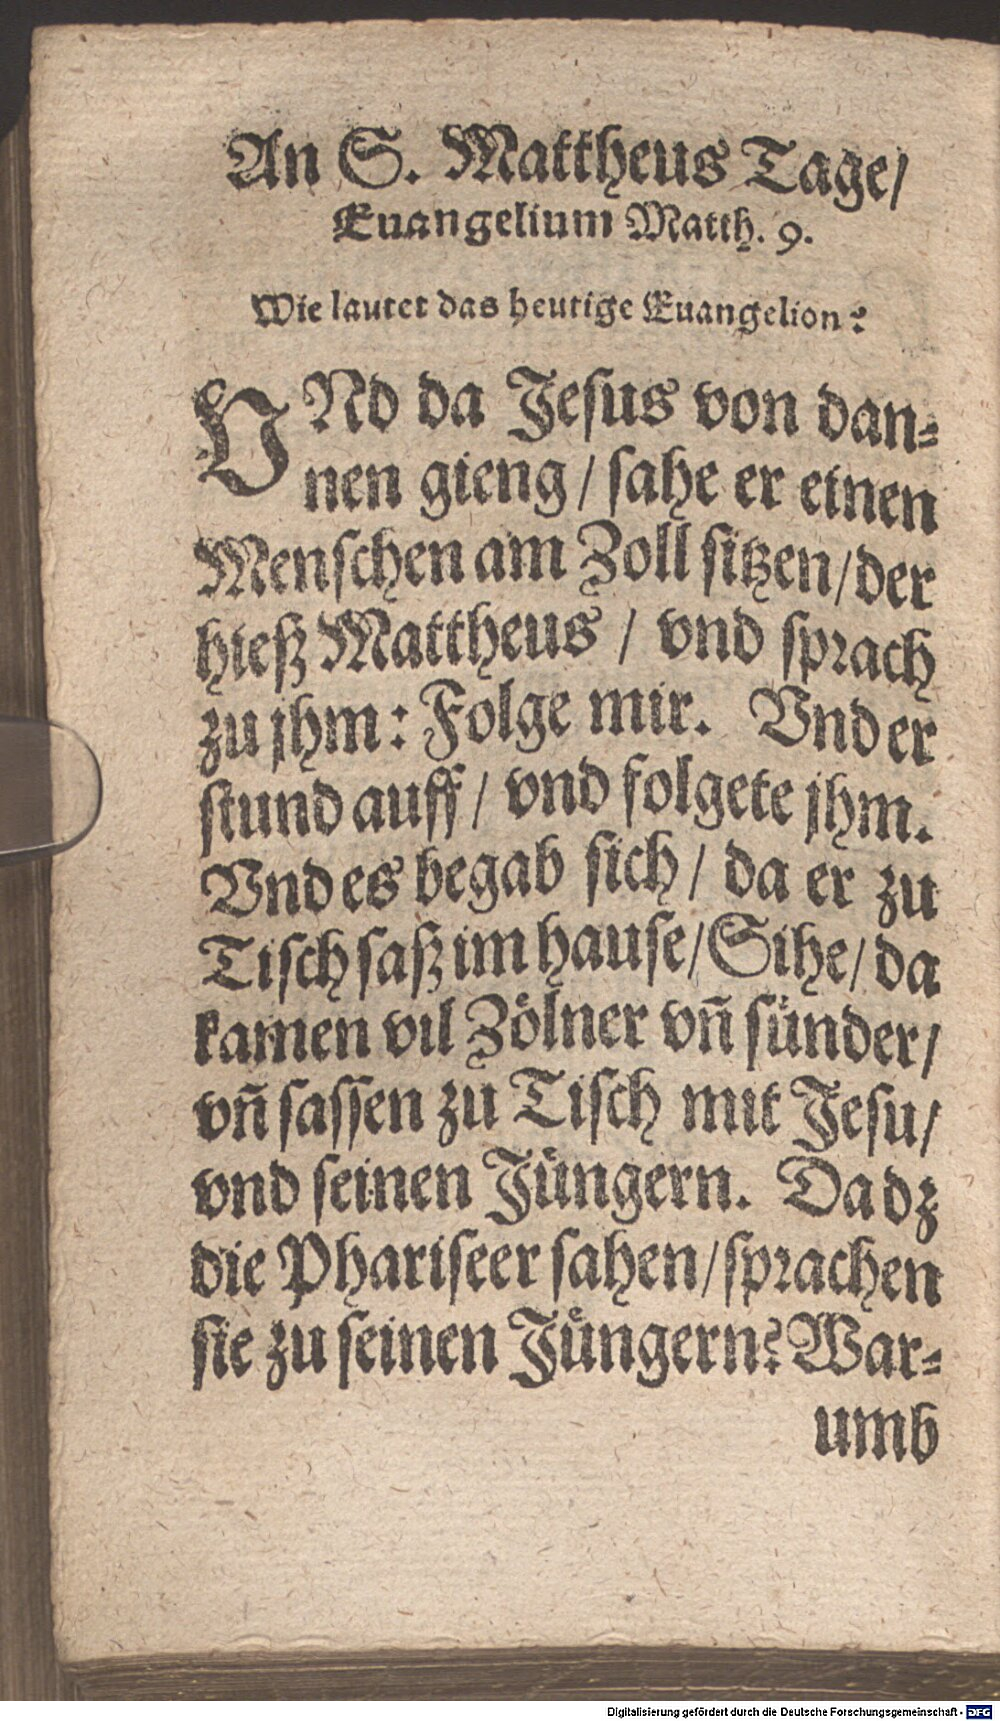 An S. Mattheus Tage/
Euangelium Matth. 9.
Wie lautet das heutige Euangelion?
VNd da Jesus von dan⸗
nen gieng / sahe er einen
Menschen am Zoll sitzen/der
hieß Mattheus / vnd sprach
zu jhm: Folge mir. Vnd er
stund auff / vnd folgete jhm.
Vnd es begab sich / da er zu
Tisch saß im hause/Sihe/ da
kamen vil Zölner vñ sünder/
vñ sassen zu Tisch mit Jesu/
vnd seinen Jüngern. Da dz
die Phariseer sahen/sprachen
sie zu seinen Jüngern? War⸗
umb
Digitalisierung gefördert durch die Deutsche Forschungsgemeinschaft - DFG